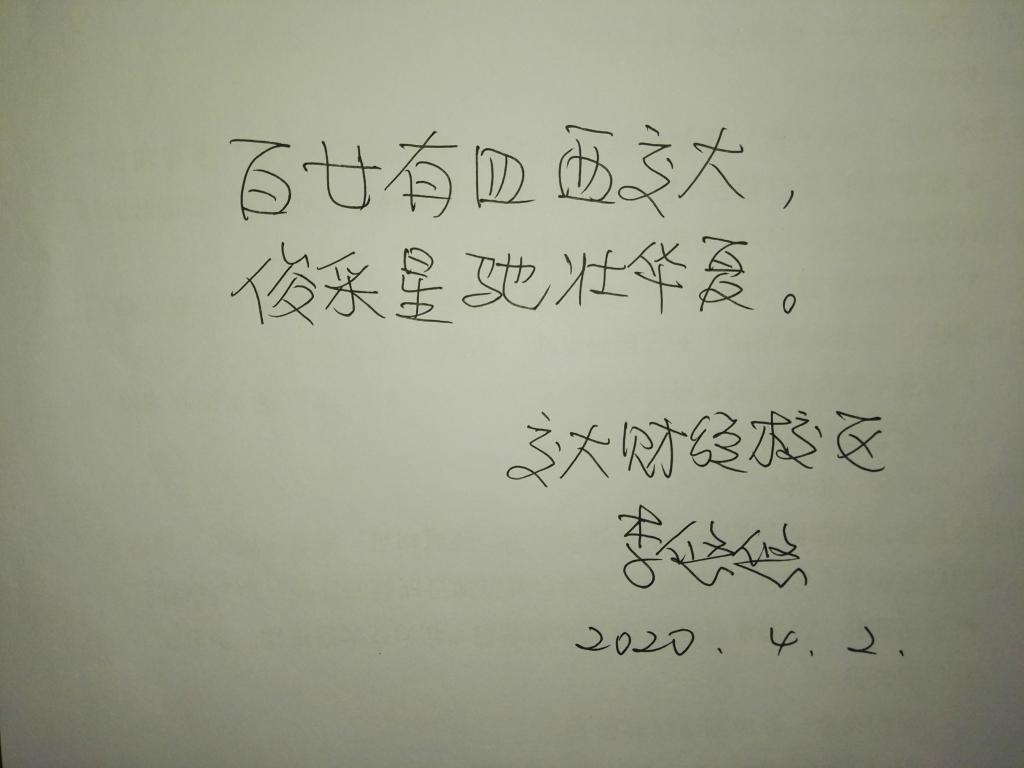 百廿有四西交大，
俊采星驰壮华夏。
交大财经校区
李悠悠
2020.4.2.